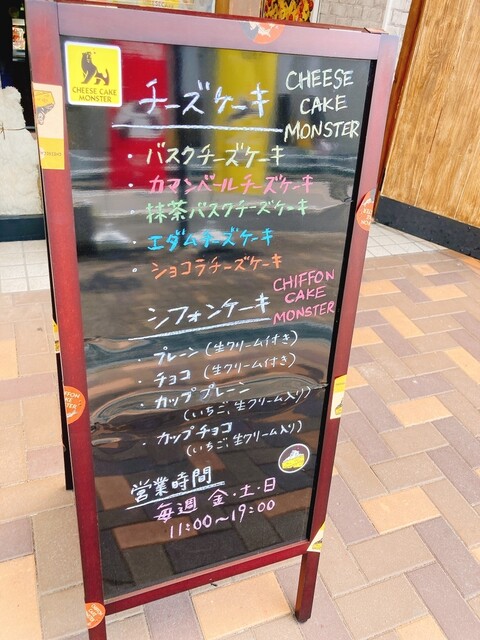 CHEESE CAKE
MONSTER
チーズケーキ
CHEESE
CAKE
MONSTER
・バスクチーズケーキ
・カマンベールチーズケーキ
・抹茶バスクチーズケーキ
・エダムチーズケーキ
・ショコラチーズケーキ
シフォンケーキ
CHIFFON
CAKE
MONSTER
・プレーン(生クリーム付き)
・チョコ(生クリーム付き)
・カッププレーン
(いちご、生クリーム入り)
・カップチョコ
(いちご、生クリーム入り)
営業時間
毎週 金・土・日
11:00～19:00